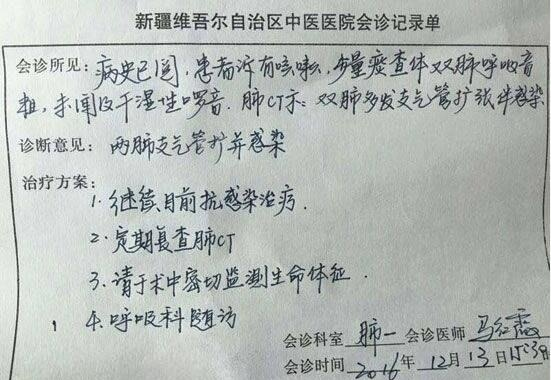 新疆维吾尔自治区中医医院会诊记录单
会诊所见：病史已阅，患者诉有咳嗽，少量痰查体双肺呼吸音
粗，未闻及干湿性啰音．肺CT示：双肺多发支气管扩张伴感染
诊断意见：两肺支气管扩并感染
治疗方案：
1. 继续目前抗感染治疗．
2. 定期复查肺CT
3. 请于术中密切监测生命体征．
4. 呼吸科随访
会诊科室 肺一 会诊医师 马红霞
会诊时间 2016年 12月 13日